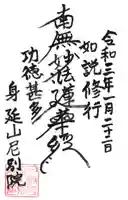 令和三年一月二十一日
如説修行
南無妙法蓮華経
功徳甚多
身延山尼別院